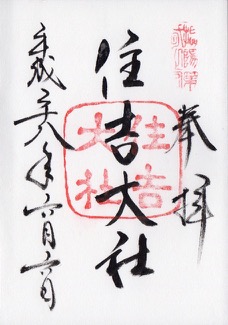 奉拝
住吉大社
住吉
大社
平成二十八年六月六日